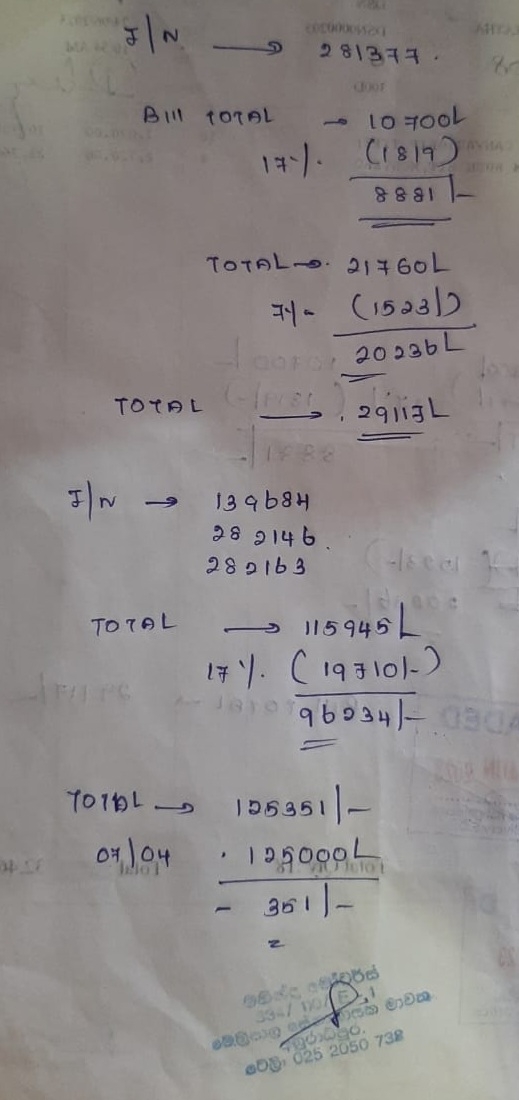 I/N → 281377.
Bill TOTAL → 10700/-
17%. (1819)
8881/-
TOTAL →. 21760/-
7% - (1523/)
20236/-
TOTAL → . 29117/-
I/N → 139684
282146.
282163
TOTAL → 115945/-
17%. (19710/-)
96234/-
TOTAL → 125351/-
07/04 . 125000/-
- 351/-
334/
අනුරාධපුර.
025 2050 738